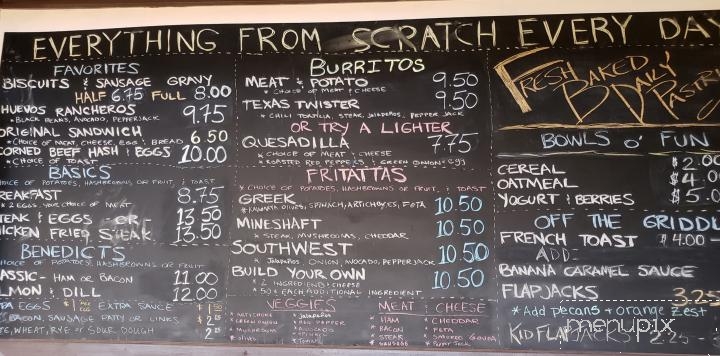 EVERYTHING FROM SCRATCH EVERY DAY
FAVORITES
BISCUITS & SAUSAGE GRAVY
HALF 6.75 FULL 8.00
HUEVOS RANCHEROS 9.75
* BLACK BEANS, AVOCADO, PEPPERJACK
ORIGINAL SANDWICH 6.50
* CHOICE OF MEAT, CHEESE, EGG & BREAD
CORNED BEEF HASH & EGGS 10.00
* CHOICE OF TOAST
BASICS
CHOICE OF POTATOES, HASHBROWNS OR FRUIT, & TOAST
BREAKFAST 8.75
* 2 EGGS YOUR CHOICE OF MEAT
STEAK & EGGS OR 13.50
CHICKEN FRIED STEAK 13.50
BENEDICTS
CHOICE OF POTATOES, HASHBROWNS OR FRUIT
CLASSIC - HAM OR BACON 11.00
SALMON & DILL 12.00
EXTRA EGGS EXTRA SAUCE
BACON, SAUSAGE PATTY OR LINKS
WHEAT, RYE OR SOUR DOUGH
BURRITOS
MEAT & POTATO 9.50
* CHOICE OF MEAT & CHEESE
TEXAS TWISTER 9.50
* CHILI TORTILLA, STEAK, JALAPEÑOS, PEPPER JACK
OR TRY A LIGHTER
QUESADILLA 7.75
* CHOICE OF MEAT & CHEESE
* ROASTED RED PEPPERS & GREEN ONION & EGG
FRITTATAS
* CHOICE OF POTATOES, HASHBROWNS OR FRUIT, & TOAST
GREEK 10.50
* KALAMATA OLIVES, SPINACH, ARTICHOKES, FETA
MINESHAFT 10.50
* STEAK, MUSHROOMS, CHEDDAR
SOUTHWEST 10.50
* JALAPEÑOS, ONION, AVOCADO, PEPPERJACK
BUILD YOUR OWN 10.50
* 2 INGREDIENTS & CHEESE
* 50¢ EACH ADDITIONAL INGREDIENT
VEGGIES
* ARTICHOKE
* GREEN ONION
* MUSHROOM
* OLIVES
* JALAPEÑOS
* RED PEPPER
* AVOCADO
* SPINACH
MEAT & CHEESE
* HAM
* BACON
* STEAK
* SAUSAGE
* CHEDDAR
* FETA
* SMOKED GOUDA
* PEPPER JACK
FRESH BAKED DAILY PASTRIES
BOWLS O' FUN
CEREAL $2.00
OATMEAL $4.0
YOGURT & BERRIES $5.0
OFF THE GRIDDL
FRENCH TOAST $4.00-
ADD-
BANANA CARAMEL SAUCE
FLAPJACKS 3.25
*Add pecans & orange zest
KID FLAPJACKS 2.25
menupix